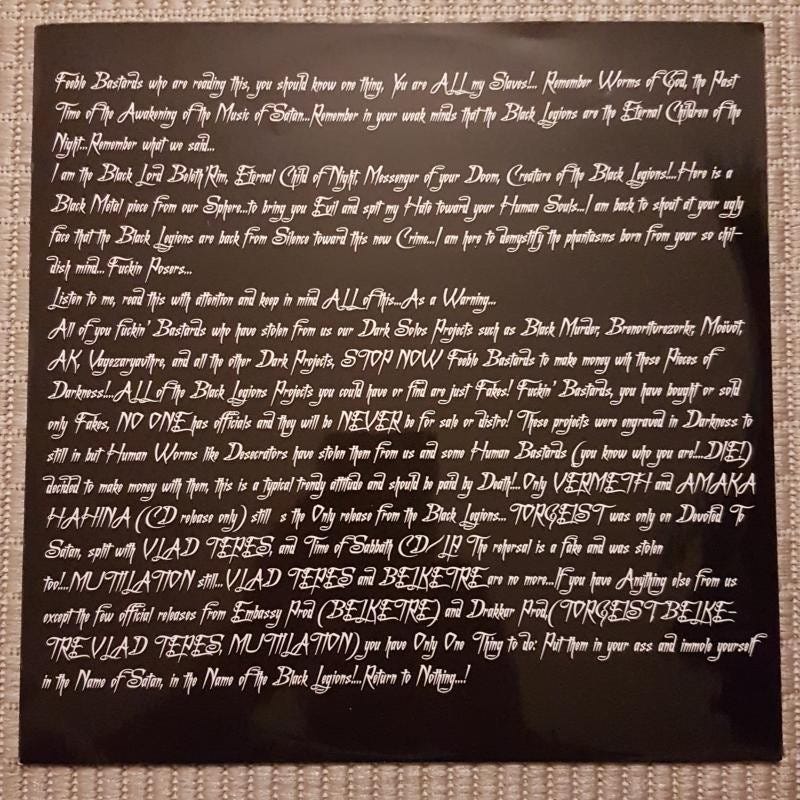 Feeble Bastards who are reading this, you should know one thing, You are ALL my Slaves!.. Remember Worms of God, the Past
Time of the Awakening of the Music of Satan...Remember in your weak minds that the Black Legions are the Eternal Children of the
Night...Remember what we said...
I am the Black Lord Beleth'Rim, Eternal Child of Night, Messenger of your Doom, Creature of the Black Legions!...Here is a
Black Metal piece from our Sphere...to bring you Evil and spit my Hate toward your Human Souls...I am back to shout at your ugly
face that the Black Legions are back from Silence toward this new Crime...I am here to demystify the phantasms born from your so chil-
dish mind... Fuckin Posers...
Listen to me, read this with attention and keep in mind ALL of this...As a Warning...
All of you fuckin' Bastards who have stolen from us our Dark Solos Projects such as Black Murder, Brenoriturezorkr, Moëvöt,
AK, Vagezaryavthre, and all the other Dark Projects, STOP NOW Feeble Bastards to make money wih those Pieces of
Darkness!...ALL of the Black Legions Projects you could have or find are just Fakes! Fuckin' Bastards, you have bought or sold
only Fakes, NO ONE has officials and they will be NEVER be for sale or distro! These projects were engraved in Darkness to
still in but Human Worms like Desecrators have stolen them from us and some Human Bastards (you know who you are!...DIE!)
decided to make money with them, this is a typical trendy attitude and should be paid by Death!..Only VERMETH and AMAKA
HAHINA (CD release only) still s the Only release from the Black Legions... TORGEIST was only on Devoted To
Satan, split with VLAD TEPES, and Time of Sabbath CD/LP! The rehersal is a fake and was stolen
too!..MUTIILATION still...VLAD TEPES and BELKETRE are no more...If you have Anything else from us
except the few official releases from Embassy Prod (BELKETRE) and Drakkar Prod.(TORGEIST BELKE-
TRE VLAD TEPES, MUTIILATION) you have Only One Thing to do: Put them in your ass and immole yourself
in the Name of Satan, in the Name of the Black Legions!...Return to Nothing...!